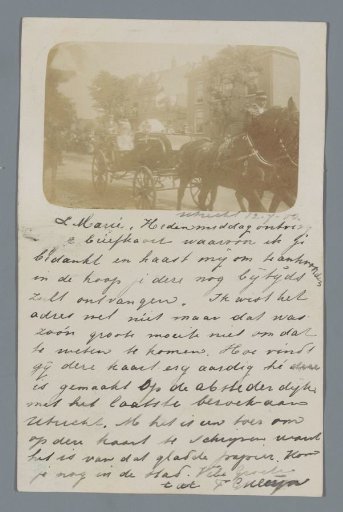 Utrecht 12-7-04
L Marie. Heden middag ontving
ik briefkaart waarvoor ik je
bedankt en haast mij om te antwoorden
in de hoop je deze nog bijtijds
zult ontvangen. Ik wist het
adres wel niet maar dat was
zoo'n groote moeite niet om dat
te weten te komen. Hoe vindt
gij deze kaart erg aardig hé
is gemaakt op de Abstederdijk
met het laatste bezoek aan
Utrecht. M het is een toer om
op deze kaart te schrijven want
het is van dat gladde papier. Kom
je nog in de stad. Vele groeten